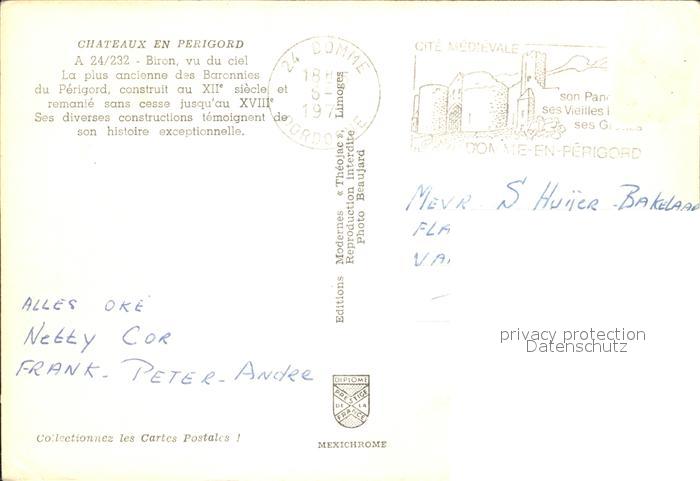 CHATEAUX EN PERIGORD
A 24/232 - Biron, vu du ciel
La plus ancienne des Baronnies
du Périgord, construit au XIIe siècle et
remanié sans cesse jusqu'au XVIIIe
Ses diverses constructions témoignent de
son histoire exceptionnelle.
24 DOMME
18H
197
DORDOGNE
CITÉ MÉDIÉVALE
son Pan
ses Vieilles
ses G
DOMME-EN-PÉRIGORD
Editions Modernes « Théojac », Limoges
Reproduction interdite
Photo Beaujard
MEVR. S HUIJER-BAKELAAR
FLA
VA
ALLES OKÉ
Netty Cor
FRANK- PETER- Andre
privacy protection
Datenschutz
DIPLOME
PRESTIGE
DE LA
FRANCE
Collectionnez les Cartes Postales !
MEXICHROME